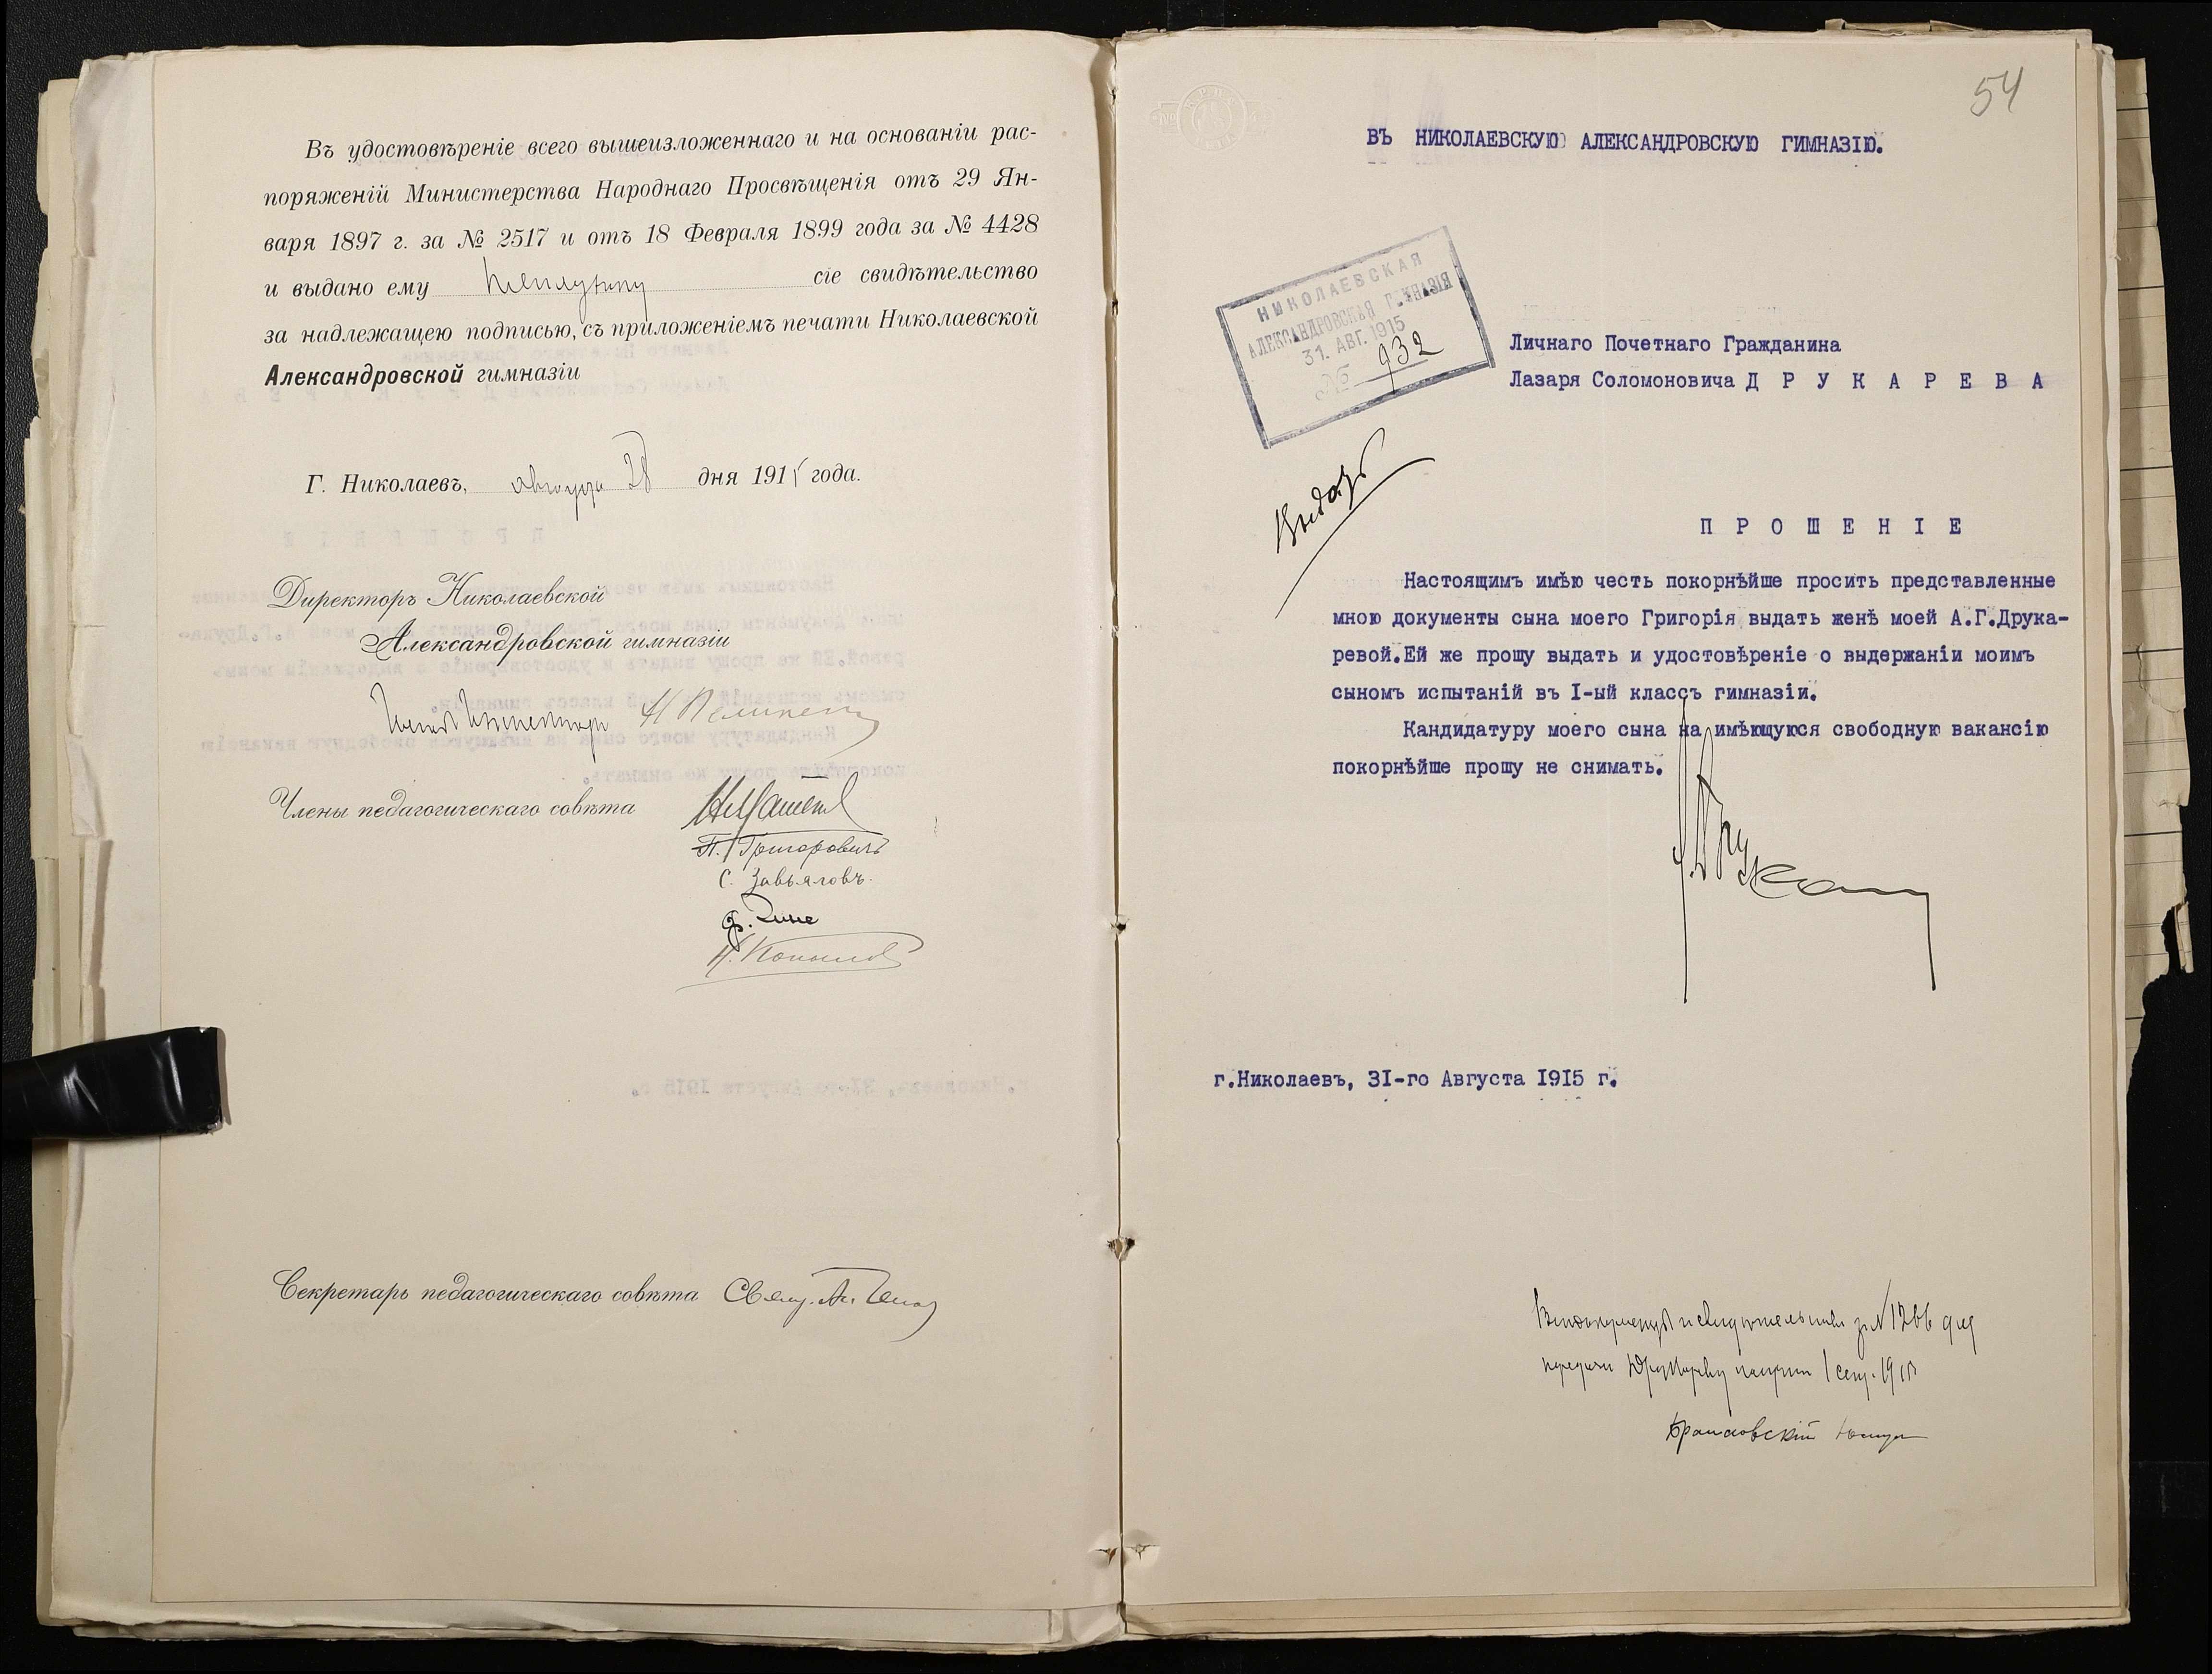 Въ удостовѣреніе всего вышеизложеннаго и на основаніи рас-
поряженій Министерства Народнаго Просвѣщенія отъ 29 Ян-
варя 1897 г. за № 2517 и отъ 18 Февраля 1899 года за № 4428
и выдано ему сіе свидѣтельство
за надлежащею подписью, съ приложеніемъ печати Николаевской
Александровской гимназіи
Г. Николаевъ, августа 28 дня 1915 года.
Директоръ Николаевской
Александровской гимназіи
Члены педагогическаго совѣта
П. Григоровичъ
С. Завьяловъ.
Секретарь педагогическаго совѣта
54
ВЪ НИКОЛАЕВСКУЮ АЛЕКСАНДРОВСКУЮ ГИМНАЗІЮ.
НИКОЛАЕВСКАЯ
АЛЕКСАНДРОВСКАЯ ГИМНАЗІЯ
31. АВГ. 1915
№ 932
Личнаго Почетнаго Гражданина
Лазаря Соломоновича Д Р У К А Р Е В А
Выдать
П Р О Ш Е Н І Е
Настоящимъ имѣю честь покорнѣйше просить представленные
мною документы сына моего Григорія выдать женѣ моей А.Г.Друка-
ревой.Ей же прошу выдать и удостовѣреніе о выдержаніи моимъ
сыномъ испытаній въ I-ый классъ гимназіи.
Кандидатуру моего сына на имѣющуюся свободную вакансію
покорнѣйше прошу не снимать.
г.Николаевъ, 3I-го Августа I9I5 г.